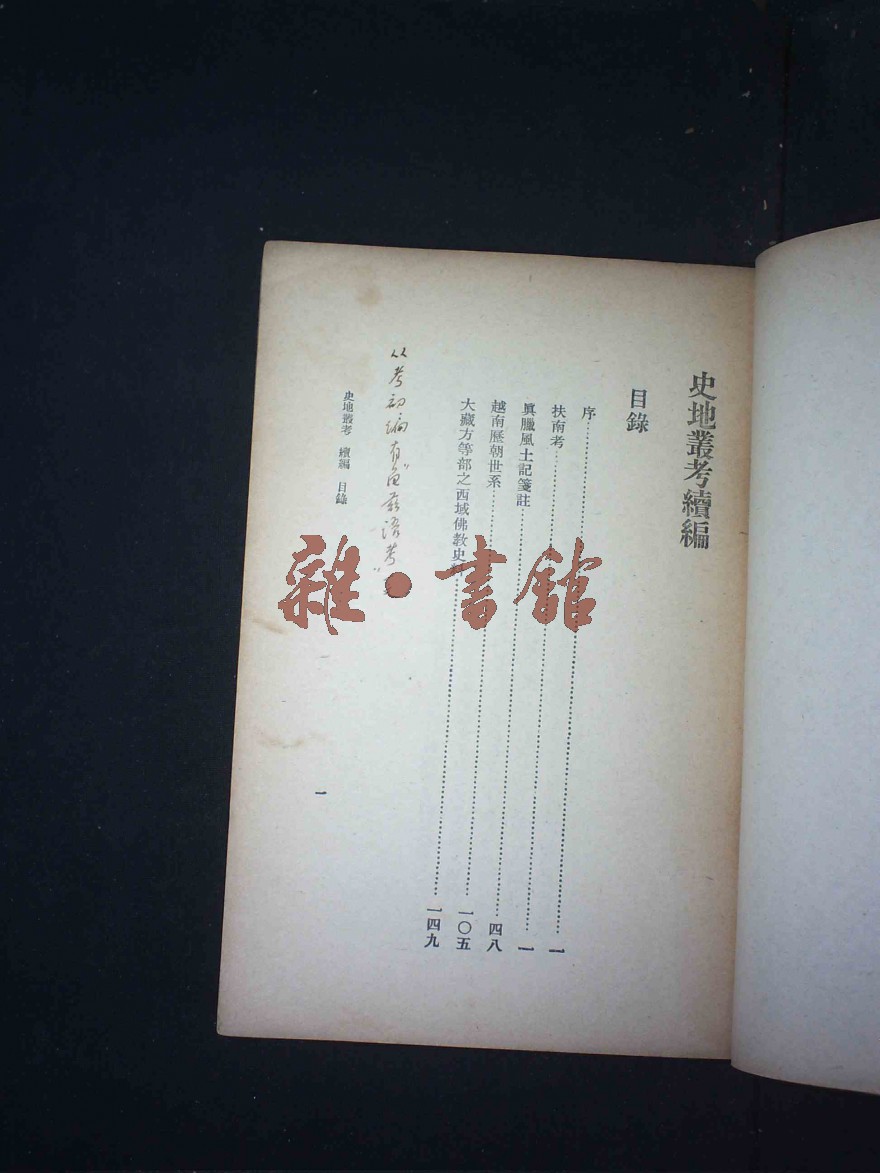 史地叢考續編
目錄
序⋯⋯⋯⋯⋯⋯一
扶南考⋯⋯⋯⋯⋯⋯一
眞臘風土記箋註⋯⋯⋯⋯⋯⋯四八
越南歷朝世系⋯⋯⋯⋯⋯⋯一〇五
大藏方等部之西域佛教史料⋯⋯⋯⋯⋯⋯一四九
考初编有
史地叢考 續編 目錄
一
雜·書館